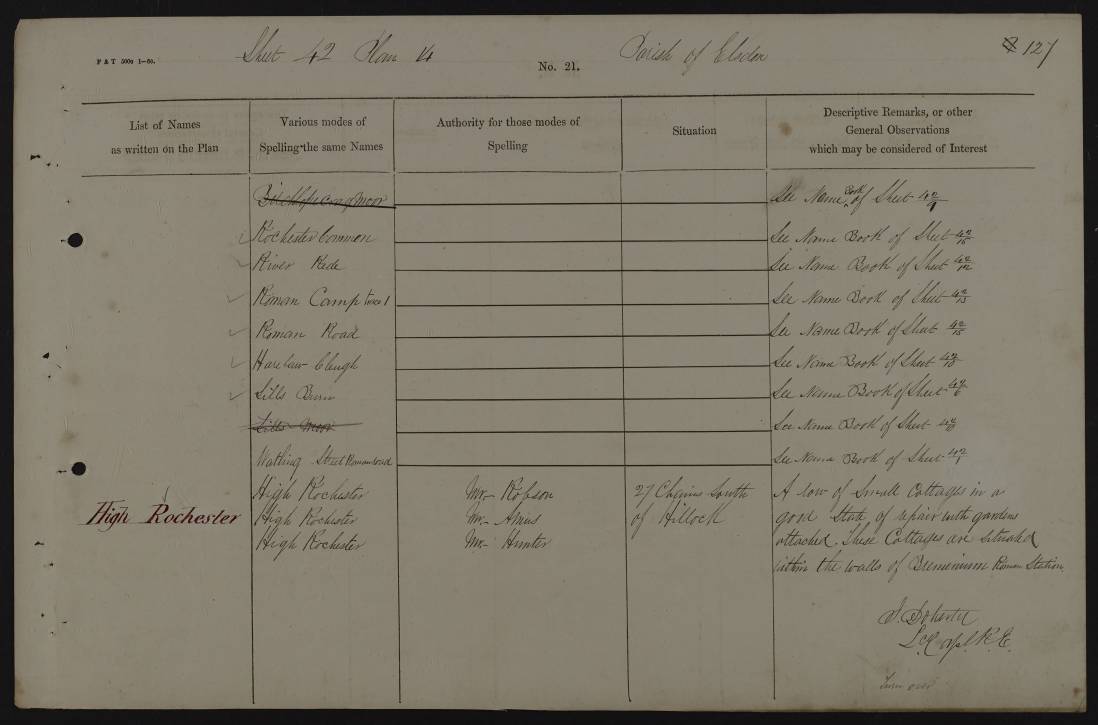 F & T 5000 1-60.
Sheet 42 Plan 14
No. 21.
Parish of Elsdon
127
List of Names
as written on the Plan
Various modes of
Spelling the same Names
Authority for those modes of
Spelling
Situation
Descriptive Remarks, or other
General Observations
which may be considered of Interest
See Name Book of Sheet 42/9
Rochester Common
See Name Book of Sheet 42/15
River Rede
See Name Book of Sheet 42/12
Roman Camp
See Name Book of Sheet 42/15
Roman Road
See Name Book of Sheet 42/15
Harelaw Cleugh
See Name Book of Sheet 42/10
Sills Burn
See Name Book of Sheet 42/6
Sills Moor
See Name Book of Sheet
Watling Street Roman Road
See Name Book of Sheet 42/1
High Rochester
High Rochester Mr. Robson 27 Chains South A row of Small Cottages in a
High Rochester Mr. of Hillock good State of repair with gardens
High Rochester Mr. Hunter attached. These Cottages are situated
within the walls of Bremenium Roman Station
J. Doherty
L. Corpl. R.E.
Turn over